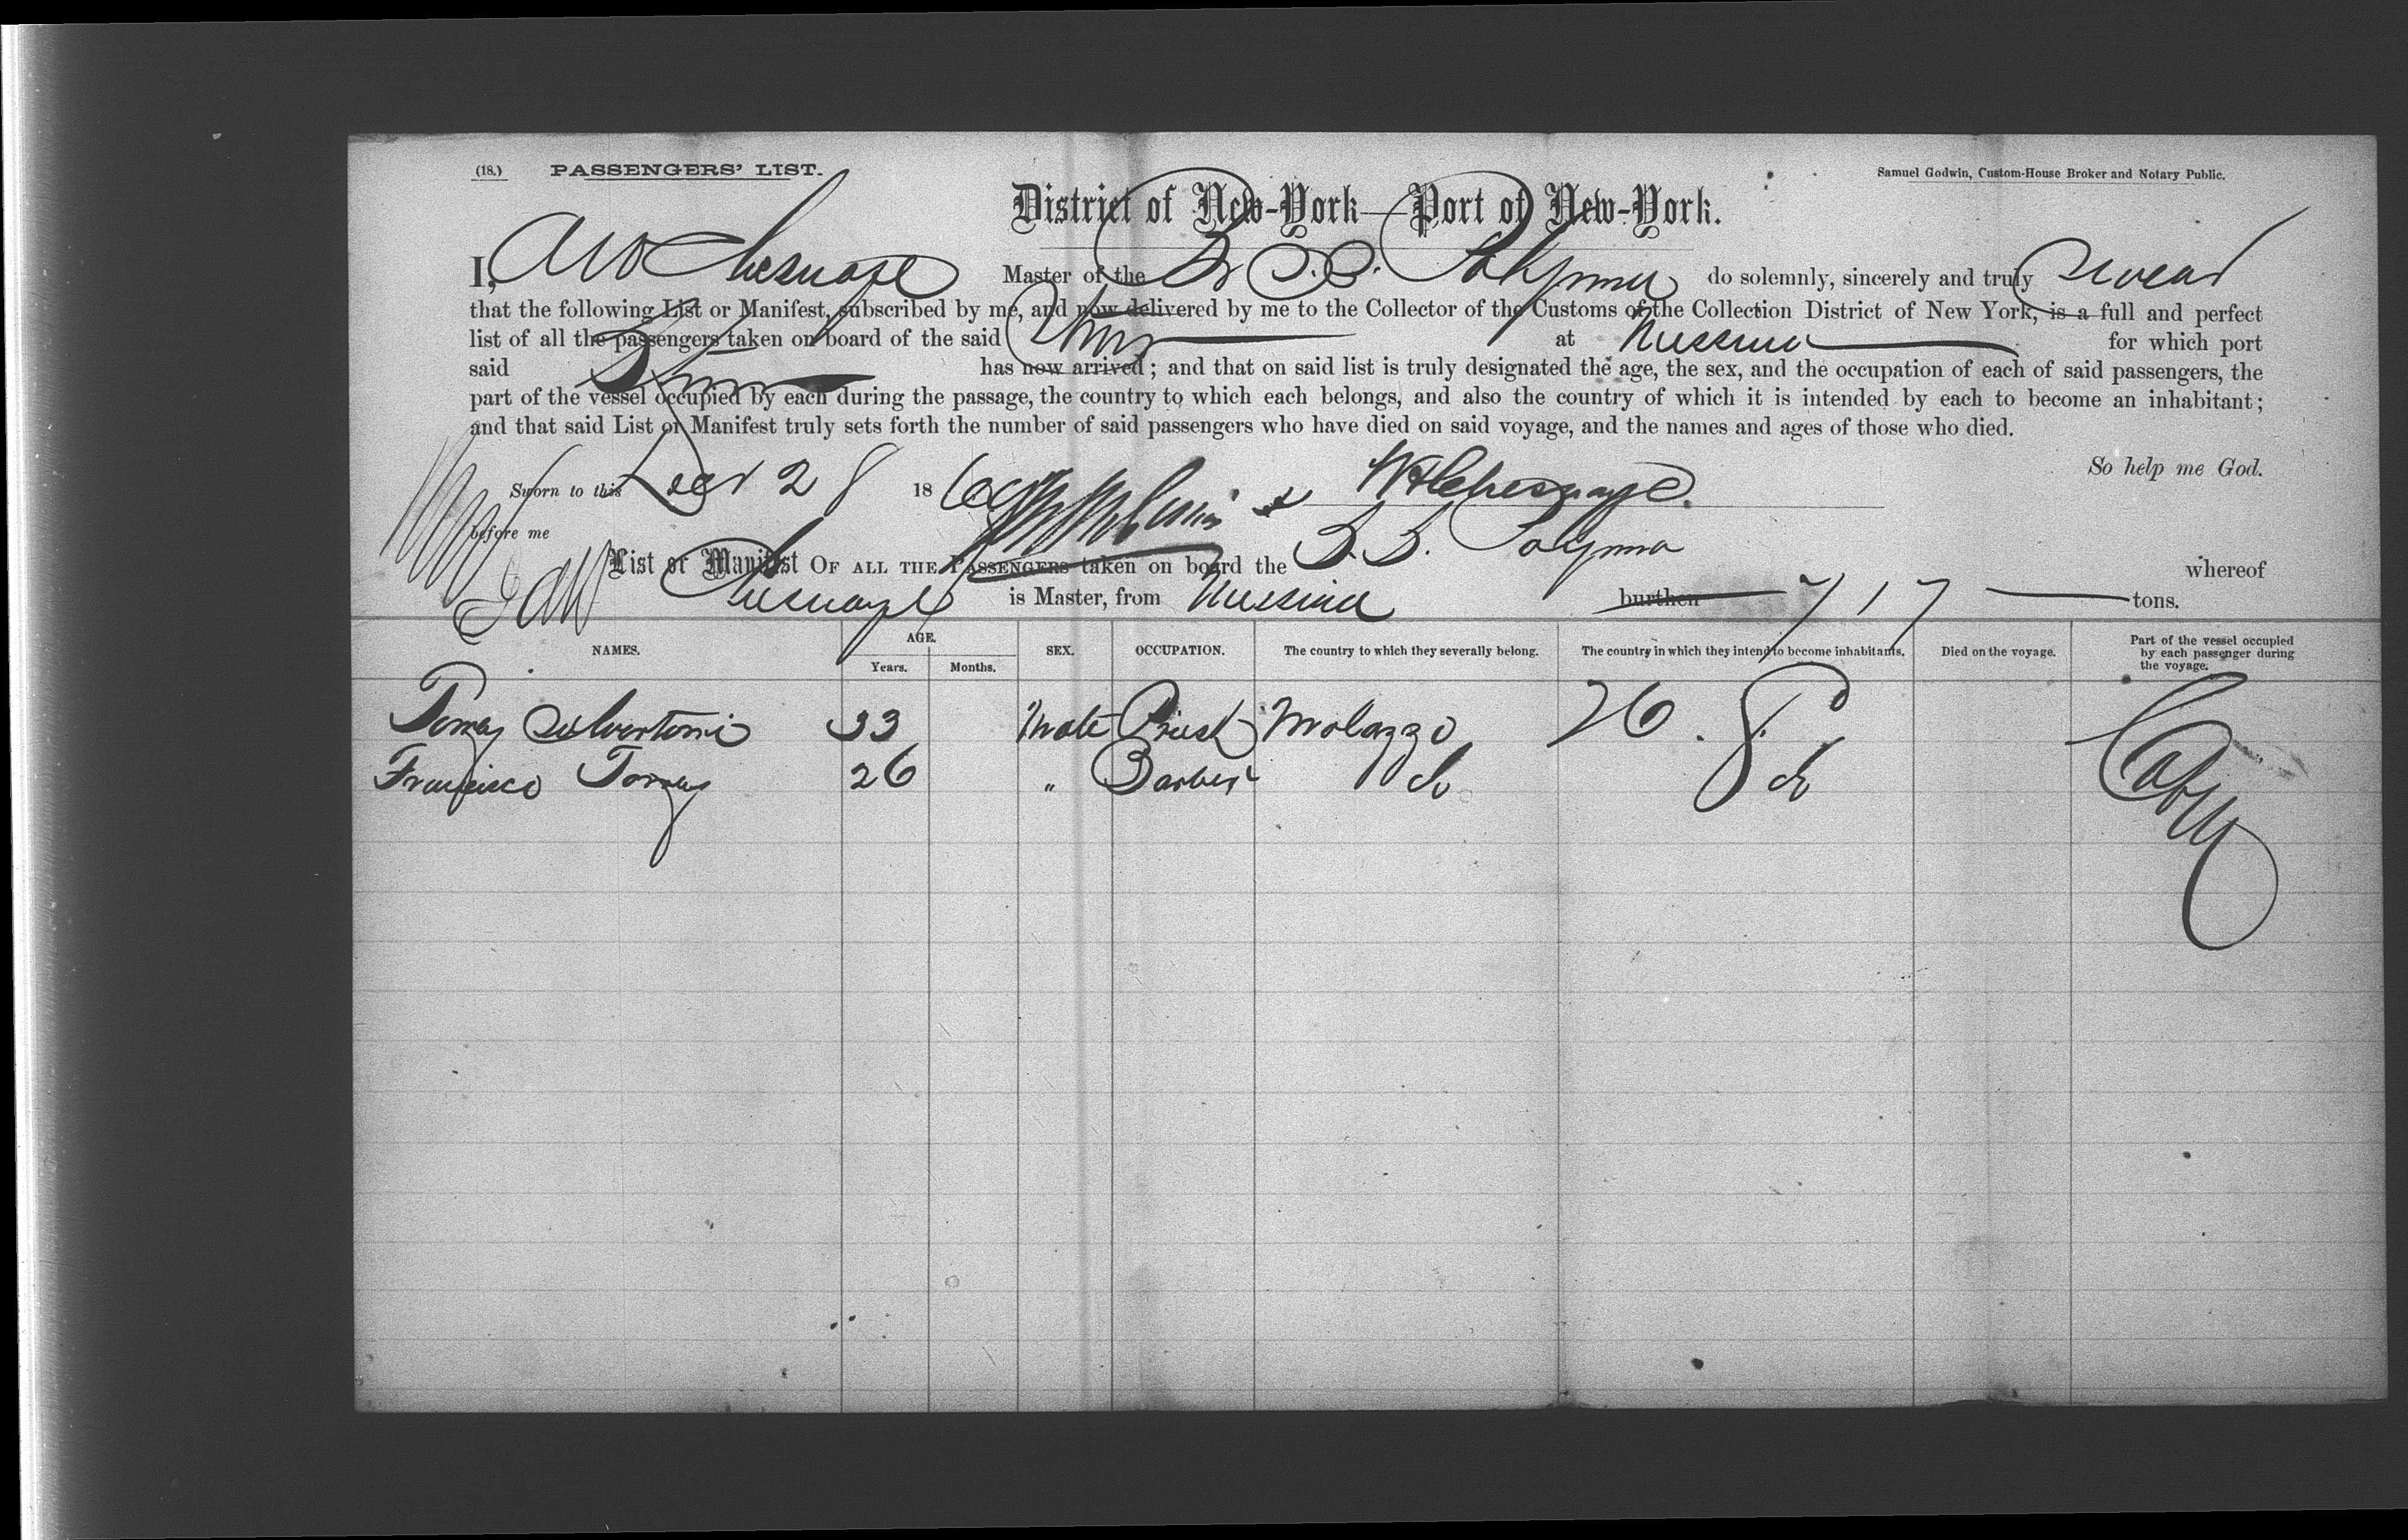 (18.) PASSENGERS' LIST. Samuel Godwin, Custom-House Broker and Notary Public.
District of New-York—Port of New-York.
I, Chesnaye Master of the Br S.S. Palyma do solemnly, sincerely and truly Swear
that the following List or Manifest, subscribed by me, and now delivered by me to the Collector of the Customs of the Collection District of New York, is a full and perfect
list of all the passengers taken on board of the said Stmr at Messina for which port
said Stmr has now arrived; and that on said list is truly designated the age, the sex, and the occupation of each of said passengers, the
part of the vessel occupied by each during the passage, the country to which each belongs, and also the country of which it is intended by each to become an inhabitant;
and that said List or Manifest truly sets forth the number of said passengers who have died on said voyage, and the names and ages of those who died.
So help me God.
Sworn to this Decr 28 186 Chesnaye
before me
List or Manifest OF ALL THE PASSENGERS taken on board the S.S. Palyma whereof
Chesnaye is Master, from Messina burthen 717 tons.
NAMES. AGE. Years. Months. SEX. OCCUPATION. The country to which they severally belong. The country in which they intend to become inhabitants. Died on the voyage. Part of the vessel occupied by each passenger during the voyage.
Tomay 33 Male Priest Molazzo Cabin
Francisco Tomay 26 " Barber do do